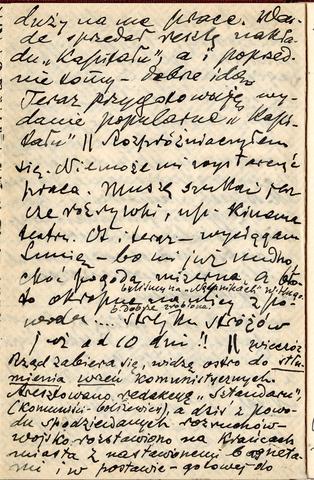 duży na me prace.
de sprzedał resztę nakła-
du „Kapitału”, a i poprzed-
nie tomy – dobrze idą.
Teraz przygotowuję wy-
danie popularne „Kapi-
tału” || Rozpróżniaczyłem
się. Nie może mi wystarczyć
praca. Muszę szukać jesz-
cze rozrywki, np. kinema
teatru. Ot i teraz – wyciągam
Lunię – bo mi już nudno,
choć pogoda mizerna. a bło-
byliśmy na „Nędznikach” W. Hugo.
to okropne na ulicy z po-
b. dobrze zrobione.
wodu .... Strajku stróżów
już od 10 dni!! || wieczór
Rząd zabiera się, widzę ostro do stłu-
mienia wrzeń komunistycznych.
Aresztowano redakcję „Sztandaru”,
(Komuniści-bolszewicy), a dziś z powo-
du spodziewanych rozruchów –
wojsko rozstawiono na krańcach
miasta z nastawionemi bagneta-
mi i w postawie – gotowej do